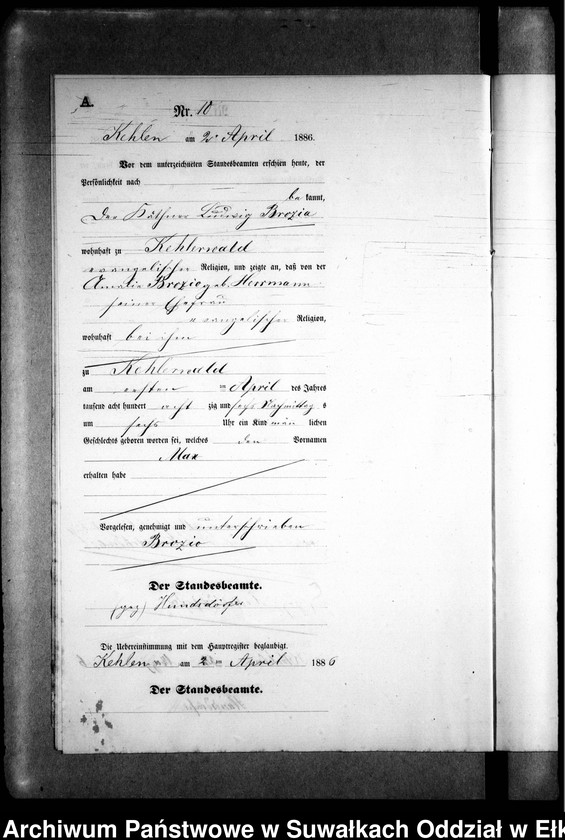 A.
Nr. 10
Kehlen am 2n April 1886.
Vor dem unterzeichneten Standesbeamten erschien heute, der
Persönlichkeit nach
be kannt,
Der Käthner Ludwig Brozio
wohnhaft zu Kehlerwald
evangelischer Religion, und zeigte an, daß von der
Amalie Brozio geb. Herrmann
seiner Ehefrau
evangelischer Religion,
wohnhaft bei ihm
zu Kehlerwald
am ersten April des Jahres
tausend acht hundert acht zig und sechs Nachmittag s
um sechs Uhr ein Kind män lichen
Geschlechts geboren worden sei, welches den Vornamen
Max
erhalten habe
Vorgelesen, genehmigt und unterschrieben
Brozio
Der Standesbeamte.
(gez) Hundsdörfer
Die Uebereinstimmung mit dem Hauptregister beglaubigt.
Kehlen am 2ten April 1886
Der Standesbeamte.
Archiwum Państwowe w Suwałkach Oddział w Ełk